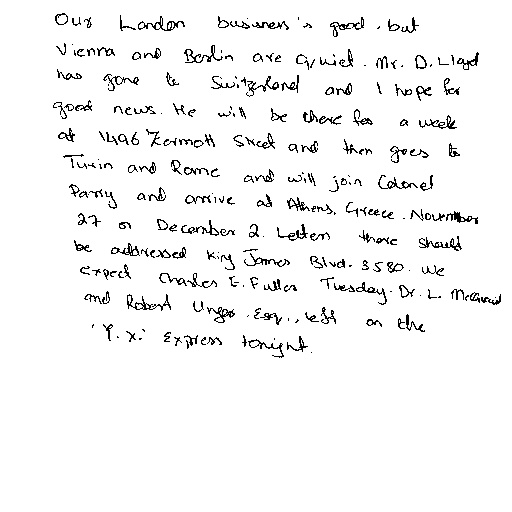 Our London business is good, but
Vienna and Berlin are quiet. Mr. D. Lloyd
has gone to Switzerland and I hope for
good news. He will be there for a week
at 1496 Zermott Street and then goes to
Turin and Rome and will join Colonel
Parry and arrive at Athens, Greece, November
27 or December 2. Letters there should
be addressed King James Blvd. 3580. We
expect Charles E. Fuller Tuesday. Dr. L. McQuaid
and Robert Unger, Esq., left on the
'Y.X.' Express tonight.